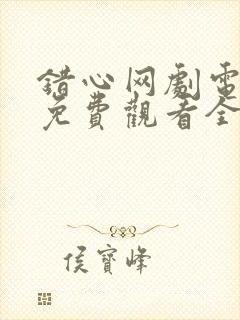 錯心网劇電
免費觀看全
侯寶峰